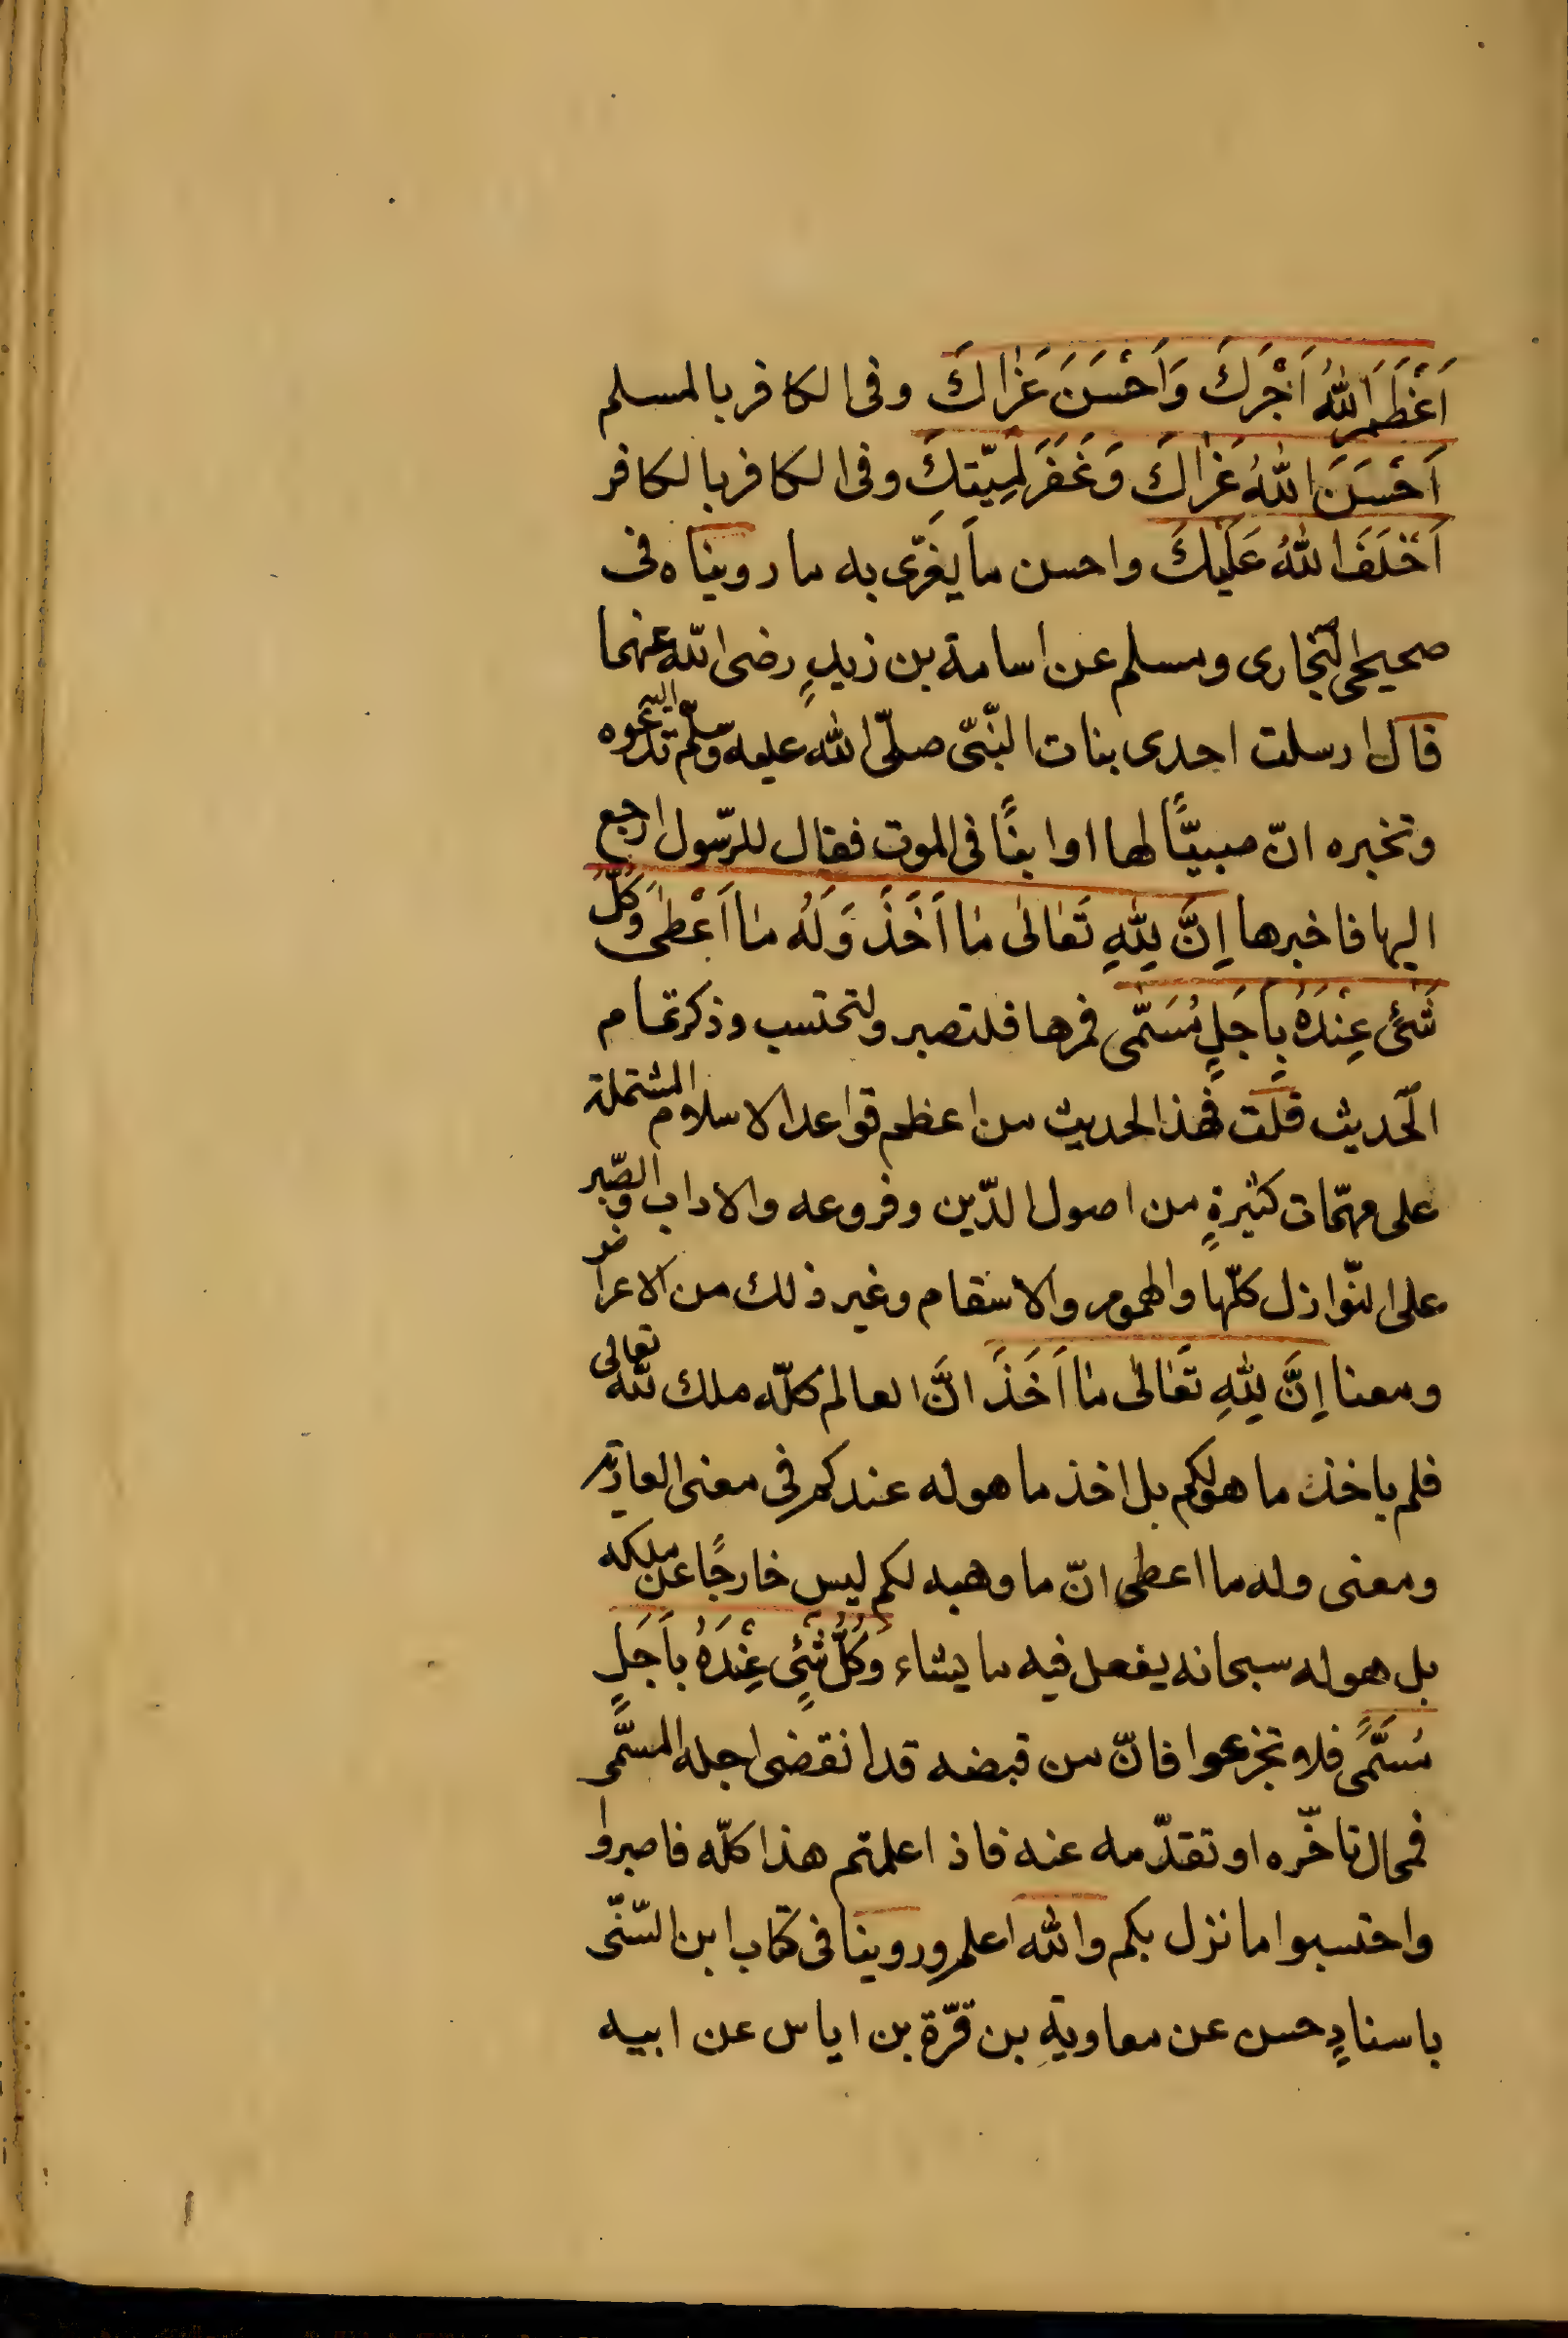 اَعْظَمَ اللّٰهُ اَجْرَكَ وَاَحْسَنَ عَزٰاكَ وفى الكافر بالمسلم
اَحْسَنَ اللّٰهُ عَزٰاكَ وَغَفَرَ لِمَيِّتِكَ وفى الكافر بالكافر
اَخْلَفَ اللّٰهُ عَلَيْكَ واحسن ما يعزّى به ما رويناه فى
صحيحى البخارى ومسلم عن اسامة بن زيدٍ رضى اللّه عنهما
قال ارسلت احدى بنات النّبىّ صلّى اللّه عليه وسلّم اليه تدعوه
وتخبره انّ صبيًّا لها او ابنًا فى الموت فقال للرّسول ارجع
اليها فاخبرها اِنَّ لِلّٰهِ تَعٰالىٰ مٰا اَخَذَ وَلَهُ مٰا اَعْطىٰ وَكُلُّ
شَىْئٍ عِنْدَهُ بِاَجَلٍ مُسَمّٰى فمرها فلتصبر ولتحتسب وذكر تمام
الحديث قلت فهذا الحديث من اعظم قواعد الاسلام المشتملة
على مهمّات كثيرةٍ من اصول الدّين وفروعه والاداب والصّبر
على النّوازل كلّها والهموم والاسقام وغير ذلك من الاعراض
ومعنا اِنَّ لِلّٰهِ تَعٰالىٰ مٰا اَخَذَ انَّ العالم كلّه ملك للّه تعالى
فلم ياخذ ما هو لكم بل اخذ ما هو له عندكم فى معنى العاريّة
ومعنى وله ما اعطى انّ ما وهبه لكم ليس خارجًا عن ملكه
بل هو له سبحانه يفعل فيه ما يشاء وَكُلُّ شَىْئٍ عِنْدَهُ بِاَجَلٍ
مُسَمًّى فلا تجزعوا فانّ من قبضه قد انقضى اجله المسمّى
فمحال تاخّره او تقدّمه عنه فاذا علمتم هذا كلّه فاصبروا
واحتسبوا ما نزل بكم واللّه اعلم وروينا فى كتاب ابن السّنّى
باسنادٍ حسن عن معاوية بن قرّة بن اياس عن ابيه